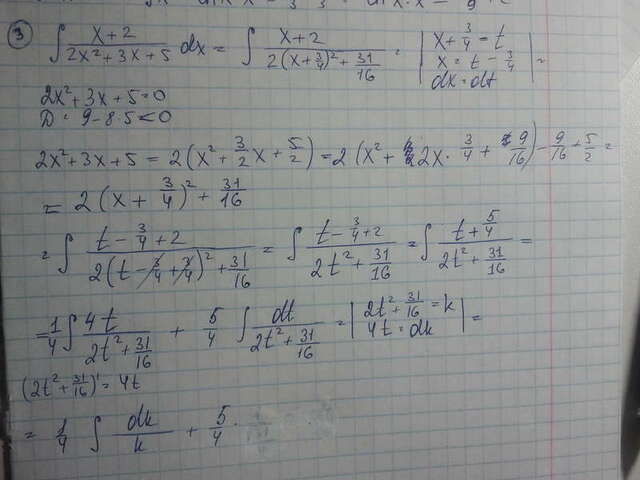 ③ ∫ (x+2)/(2x²+3x+5) dx = ∫ (x+2)/(2(x+3/4)²+31/16) = | x+3/4=t x=t-3/4 dx=dt | =
2x²+3x+5=0
D=9-8·5<0
2x²+3x+5 = 2(x²+3/2x+5/2) = 2(x²+2x·3/4+9/16)-9/16+5/2=
= 2(x+3/4)²+31/16
= ∫ (t-3/4+2)/(2(t-3/4+3/4)²+31/16) = ∫ (t-3/4+2)/(2t²+31/16) = ∫ (t+5/4)/(2t²+31/16) =
= 1/4 ∫ 4t/(2t²+31/16) + 5/4 ∫ dt/(2t²+31/16) = | 2t²+31/16=k 4t=dk | =
(2t²+31/16)'=4t
= 1/4 ∫ dk/k + 5/4 ·